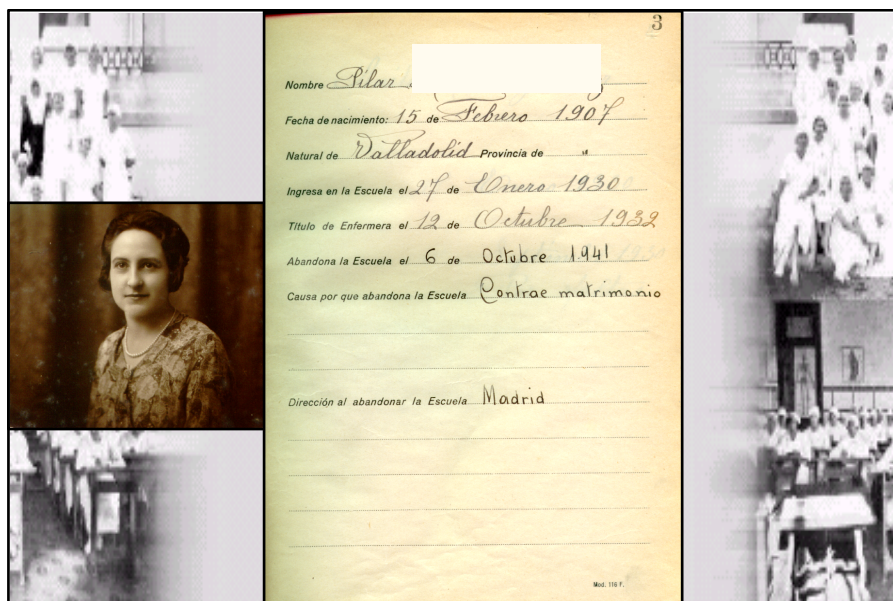 3
Nombre Pilar
Fecha de nacimiento: 15 de Febrero 1907
Natural de Valladolid Provincia de "
Ingresa en la Escuela el 27 de Enero 1930
Título de Enfermera el 12 de Octubre 1932
Abandona la Escuela el 6 de Octubre 1.941
Causa por que abandona la Escuela Contrae matrimonio
Dirección al abandonar la Escuela Madrid
Mod. 116 F.